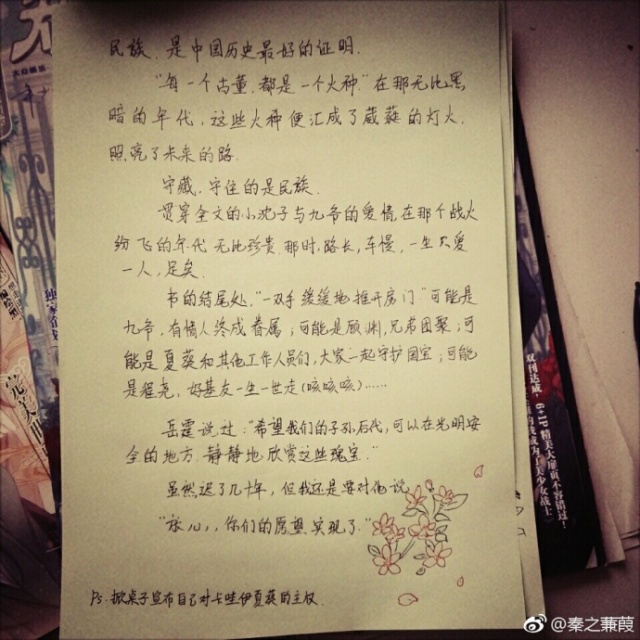 民族，是中国历史最好的证明．
"每一个古董，都是一个火种."在那无比黑
暗的年代，这些火种便汇成了葳蕤的灯火，
照亮了未来的路．
守藏，守住的是民族．
贯穿全文的小沈子与九爷的爱情，在那个战火
纷飞的年代无比珍贵．那时，路长，车慢，一生只爱
一人，足矣．
书的结尾处，"一双手缓缓地推开房门"可能是
九爷，有情人终成眷属；可能是顾渊，兄弟团聚；可
能是夏葵和其他工作人员们，大家一起守护国宝；可能
是程尧，好基友一生一世走（咳咳咳）……
岳霆说过："希望我们的子孙后代，可以在光明安
全的地方，静静地欣赏这些瑰宝．"
虽然迟了几十年，但我还是要对他说
"放心，你们的愿望实现了．"
PS．掀桌子宣布自己对卡哇伊夏葵的主权．
独家首载
完美世
双刊达成，6+1P精美大扉页不容错过！
美少女战士
@秦之蒹葭